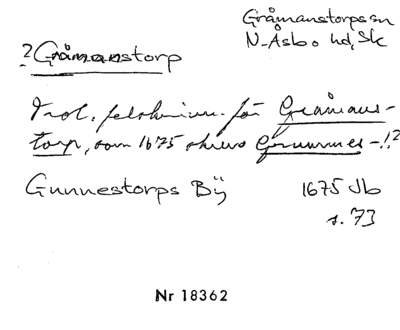 Gråmanstorps sn
N. Åsbo hd, Sk
? Gråmanstorp
Trol. felskrivn. för Gråmans-
torp, som 1675 skrevs Grummes-!?
Gunnestorps Bÿ 1675 Jb
s. 73
Nr 18362